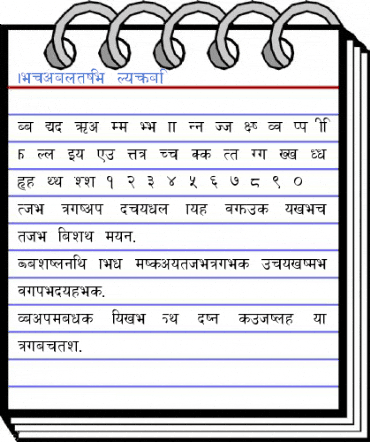 ।भचअबलतर्षभ ल्यक्तर्वा
व्ब द्यद ऋअ म्म भ्भ ाा न्न ज्ज क्ष्ष व्व प्प ीी
ल्ल इय एउ त्तत्र च्च क्क त्त ग्ग ख्ख ध्ध
हृह थ्थ श्श १ २ ३ ४ ५ ६ ७ ८ ९ ०
त्जभ त्रगष्अप दचयधल ायह वगउक यखभच
तजभ बिशथ मयन.
ब्बशष्लनथि ाभिध मष्कअयतजभत्रगभक उचयखष्मभ
वगपभदयहभक.
व्बअपमबधक यिखभ थ दष्न कउजष्लह या
त्रगबचतश.